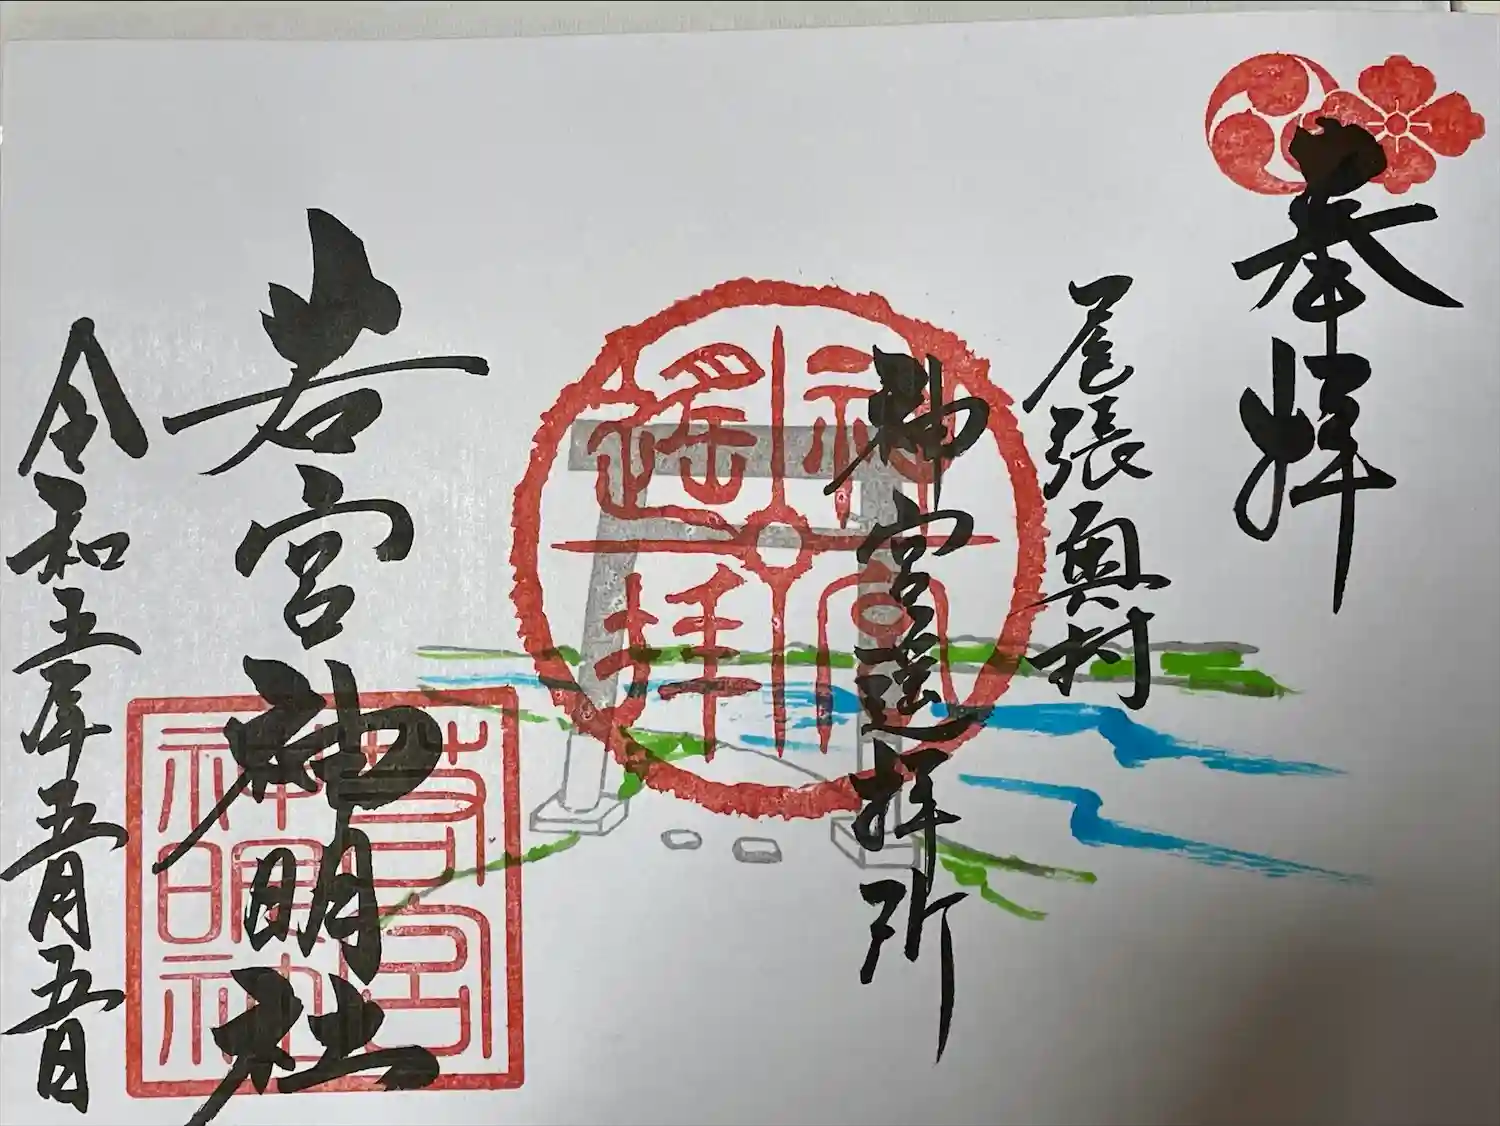 奉拝
尾張奥村
神宮遥拝所
神宮
遥拝
若宮神明社
若宮
神明社
令和五年五月五日